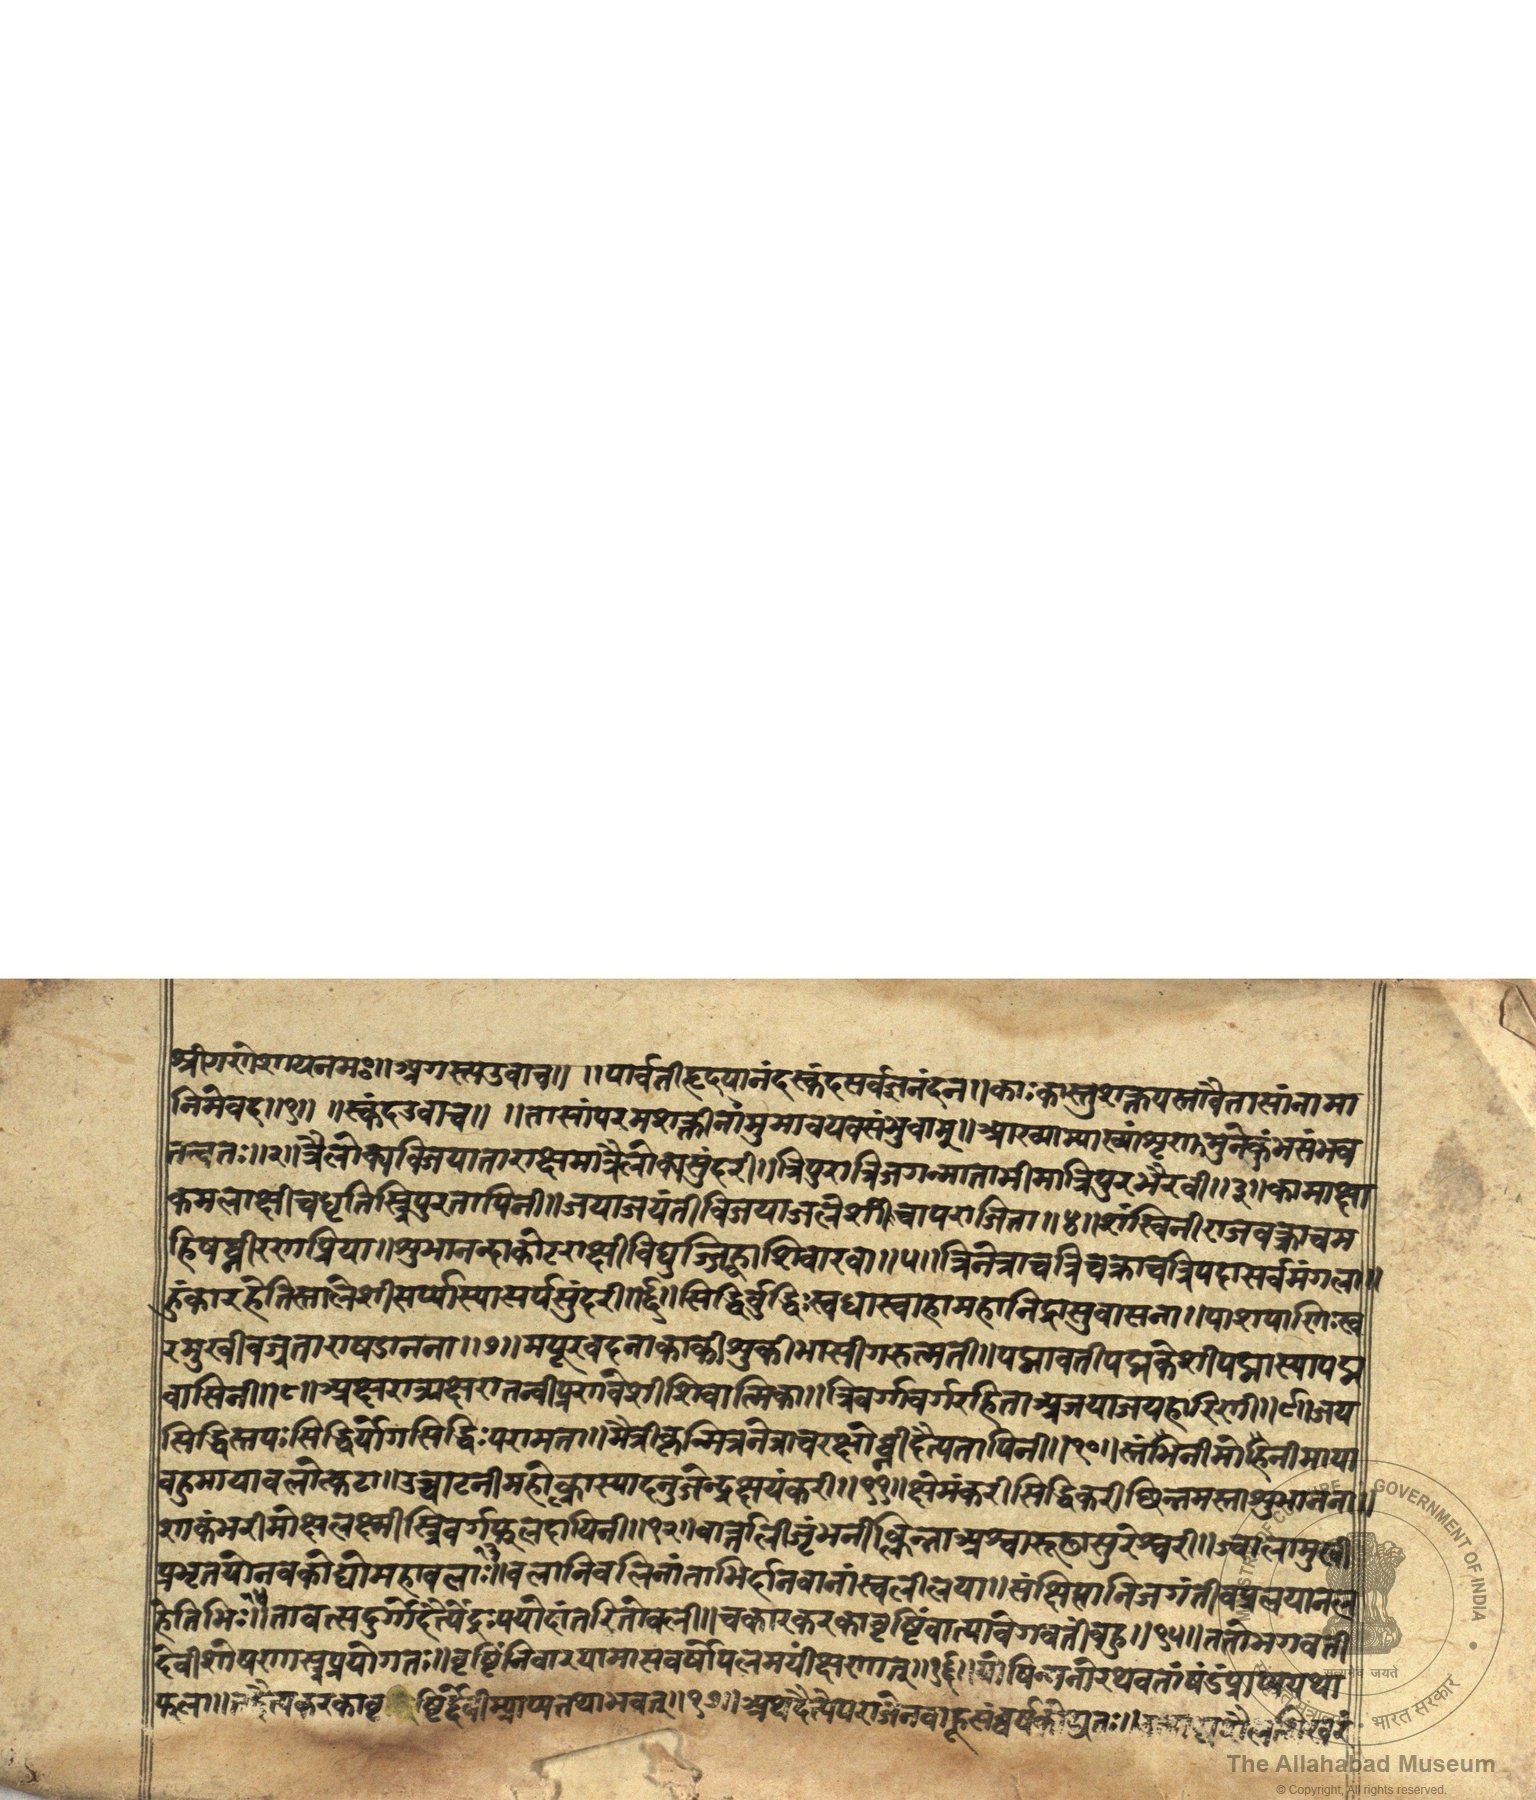 श्रीगणेशायनमः॥अगस्त्यउवाच॥ ॥पार्वतीहृदयानंदस्कंदसर्वज्ञनंदन॥काःकास्तुशक्तयस्तावैतासांनामा
निमेवद॥१॥ ॥स्कंदउवाच॥ ॥तासांपरमशक्तीनांमुमावयवसंभुवाम्॥आख्याम्याख्यांशृणुमुनेकुंभसंभव
तत्वतः॥२॥त्रैलोक्यविजयाताराक्षमात्रैलोक्यसुंदरी॥त्रिपुरात्रिजगन्माताभीमात्रिपुरभैरवी॥३॥कामाक्षा
कमलाक्षीचधृतिस्त्रिपुरतापिनी॥जयाजयंतीविजयाजलेशीचापराजिता॥४॥शंखिनीगजवक्त्राचम
हिषघ्नीरणप्रिया॥शुभानन्दाकोटराक्षीविद्युज्जिह्वाशिवारवा॥५॥त्रिनेत्राचत्रिवक्त्राचत्रिपदासर्वमंगला॥
हुंकारहेतिस्तालेशीसर्प्पास्यासर्पसुंदरी॥६॥सिद्धिर्बुद्धिःस्वधास्वाहामहानिद्रासुवासना॥पाशपाणिःख
रमुखीवज्रताराषडानना॥७॥मयूरवदनाकाकीशुकीभासीगरुत्मती॥पद्मावतीपद्मकेशीपद्मास्यापद्म
वासिनी॥८॥अक्षरात्र्यक्षरातन्वीप्रणवेशीशिवात्मिका॥त्रिवर्गावर्गरहिताअजयाजयहारिणी॥९॥जय
सिद्धिस्तपःसिद्धिर्योगसिद्धिःपरामता॥मैत्रीकृन्मित्रनेत्राचरक्षोघ्नीदैत्यतापिनी॥१०॥स्तंभिनीमोहिनीमाया
बहुमायाबलोत्कटा॥उच्चाटनीमहोल्कास्यादनुजेन्द्रक्षयंकरी॥११॥क्षेमंकरीसिद्धिकरीछिन्नमस्ताशुभानना॥
शाकंभरीमोक्षलक्ष्मीस्त्रिवर्गफलदायिनी॥१२॥वार्त्तालीजृंभनीक्लिन्नाअश्वारूढासुरेश्वरी॥ज्वालामुखी
प्रभृतयोनवकोट्योमहाबलाः॥बलानिबलिनांताभिर्दानवानांस्वलीलया॥संक्षिप्तानिजगंतीवप्रलयानल
हेतिभिः॥तावत्सदुर्गोदैत्येंद्रःपयोदांतरितोबली॥चकारकरकावृष्टिंवात्यावेगवतींबहु॥१५॥ततोभगवती
देवीशोषणास्त्रप्रयोगतः॥वृष्टिंनिवारयामासवर्षोपलमयींक्षणात्॥१६॥योषिन्मनोरथवतांषंडंप्राप्ययथा
फला॥दैत्यकरकावृ ष्टिर्देवीम्प्राप्यतथाभवत्॥१७॥अथदैत्येपराजेनबाहूसंघर्षकोयुतः॥ शैलशिखरं
MINISTRY OF CULTURE GOVERNMENT OF INDIA
सत्यमेव जयते
भारत सरकार
The Allahabad Museum
© Copyright, All rights reserved.